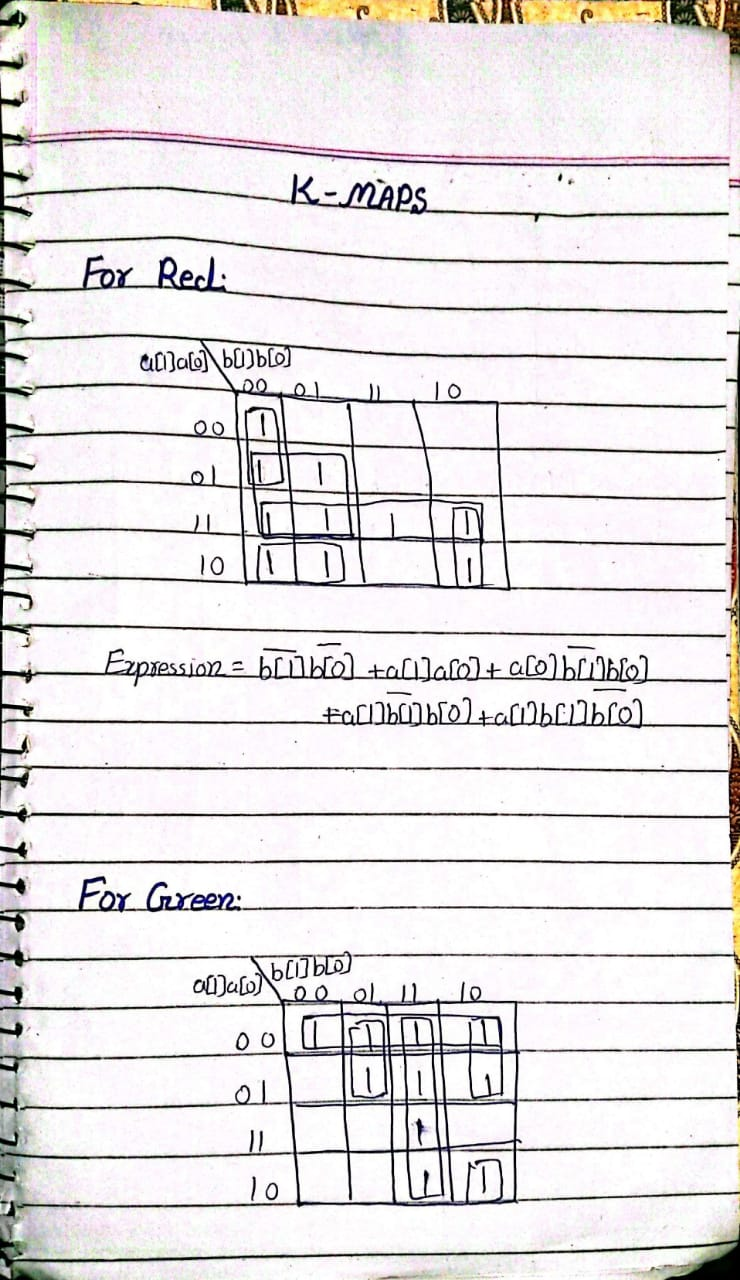 K-MAPS
For Red:
a[1]a[0] b[1]b[0]
00 01 11 10
00 1
01 1 1
11 1 1 1 1
10 1 1 1
Expression = b̅[̅1̅]̅ b̅[̅0̅]̅ + a[1]a[0] + a[0]b̅[̅1̅]̅b[0]
+a[1]b̅[̅1̅]̅b[0] + a[1]b[1]b̅[̅0̅]̅
For Green:
a[1]a[0] b[1]b[0]
00 01 11 10
00 1 1 1 1
01 1 1 1
11 1
10 1 1